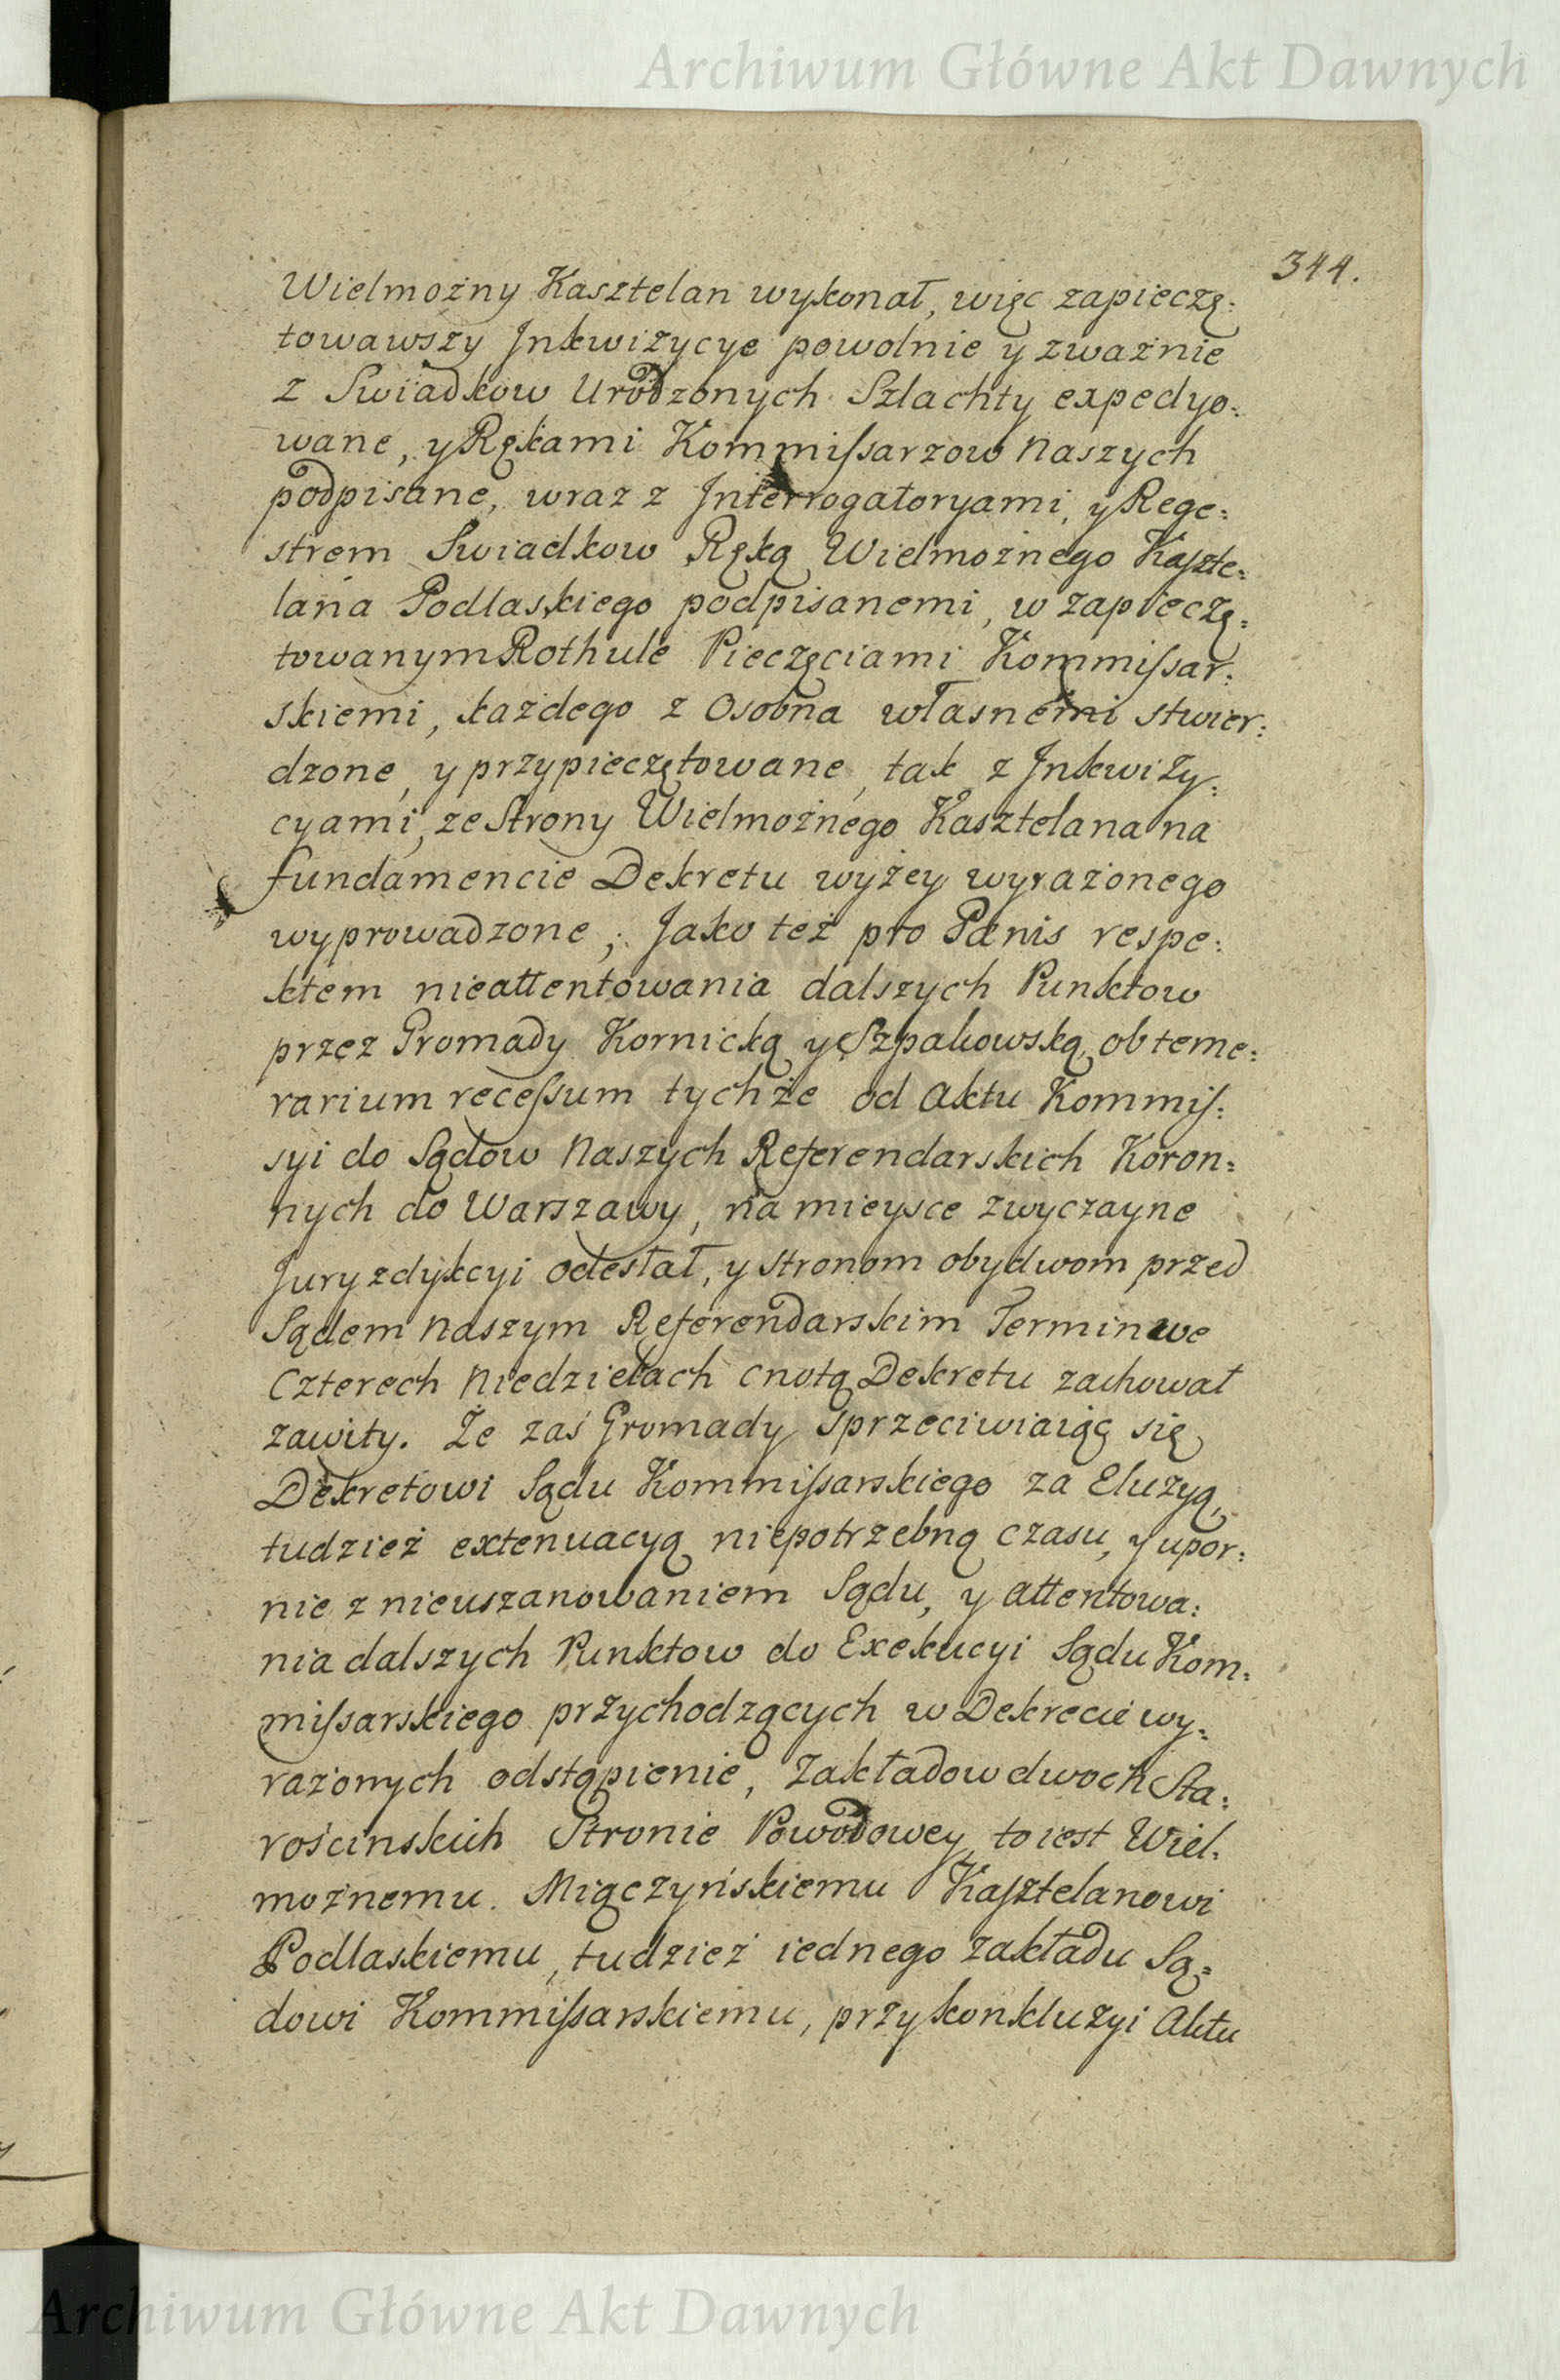 Archiwum Główne Akt Dawnych
344.
Wielmożny Kasztelan wykonał, więc zapieczę:
towawszy Jnkwizycye powolnie y zważnie
z Swiadkow Urodzonych Szlachty expedyo:
wane, y Rękami Kommiſsarzow Naszych
podpisane, wraz z Jnterrogatoryami, y Rege:
strem Swiadkow Ręką Wielmożnego Kaſzte:
lana Podlaskiego podpisanemi, w zapieczę:
towanym Rothule Pieczęciami Kommiſsar:
skiemi, każdego z Osobna własnemi stwier:
dzone, y przypieczętowane, tak z Jnkwizy:
cyami, ze Strony Wielmożnego Kasztelana na
fundamencie Dekretu wyżey wyrażonego
wyprowadzone; Jako też pro Pænis respe:
ktem nieattentowania dalszych Punktow
przez Gromady Kornicką y Szpakowską, ob teme:
rarium receſsum tychże od Aktu Kommiſ:
syi do Sądow Naszych Referendarskich Koron:
nych do Warszawy, na mieysce zwyczayne
Juryzdykcyi odesłał, y stronom obydwom przed
Sądem Naszym Referendarskim Termin we
Czterech Niedzielach cnotą Dekretu zachował
zawity. Że zaś Gromady sprzeciwiaiąc się
Dekretowi Sądu Kommiſsarskiego za Eluzyą,
tudzież extenuacyą niepotrzebną czasu, y upor:
nie z nieuszanowaniem Sądu, y attentowa:
nia dalszych Punktow do Exekucyi Sądu Kom:
miſsarskiego przychodzących w Dekrecie wy:
rażonych odstąpienie, Zakładow dwoch Sta:
rościnskich Stronie Powodowey, to iest Wiel:
możnemu Miączyńskiemu Kaſztelanowi
Podlaskiemu, tudzież iednego zakładu Są:
dowi Kommiſsarskiemu, przy konkluzyi Aktu
Archiwum Główne Akt Dawnych